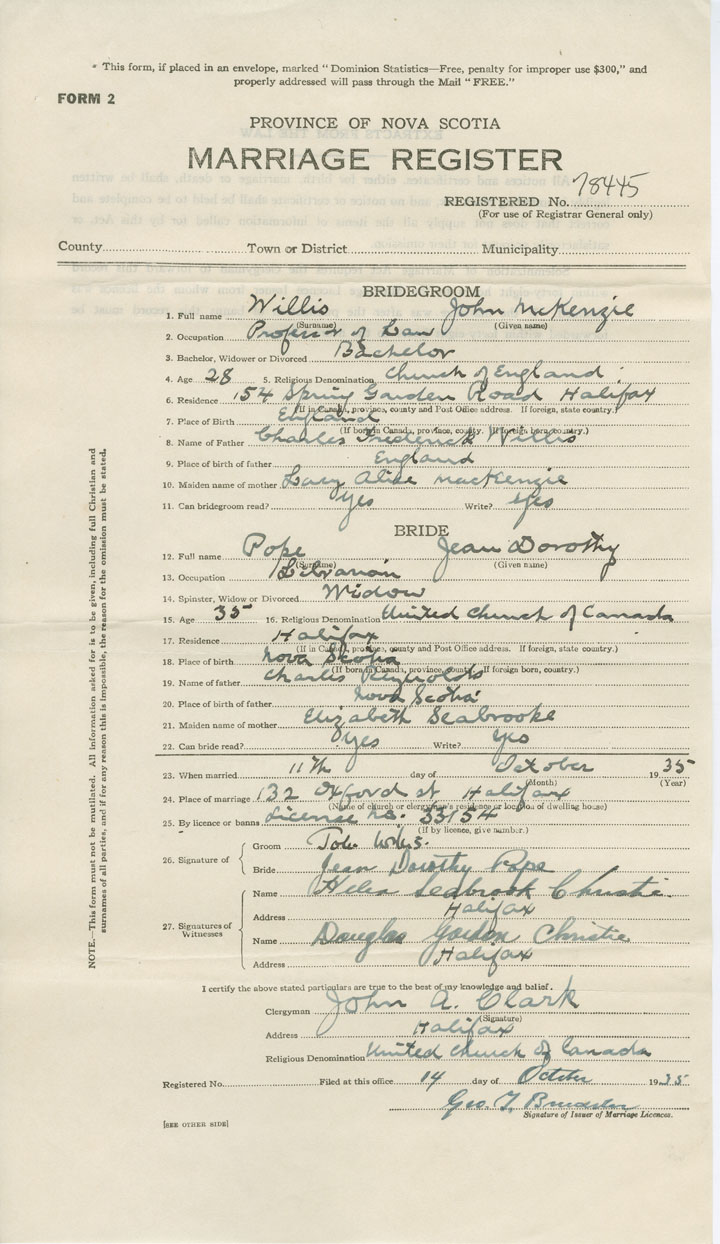 * This form, if placed in an envelope, marked "Dominion Statistics—Free, penalty for improper use $300," and
properly addressed will pass through the Mail "FREE."
FORM 2
PROVINCE OF NOVA SCOTIA
MARRIAGE REGISTER
REGISTERED No. 78445
(For use of Registrar General only)
County Town or District Municipality
BRIDEGROOM
1. Full name Willis John McKenzie
(Surname) (Given name)
2. Occupation Professor of Law
3. Bachelor, Widower or Divorced Bachelor
4. Age 28 5. Religious Denomination Church of England
6. Residence 154 Spring Garden Road Halifax
(If in Canada, province, county and Post Office address. If foreign, state country.)
7. Place of Birth England
(If born in Canada, province, county. If foreign born, country.)
8. Name of Father Charles Frederick Willis
9. Place of birth of father England
10. Maiden name of mother Lucy Alice MacKenzie
11. Can bridegroom read? Yes Write? Yes
BRIDE
12. Full name Pope Jean Dorothy
(Surname) (Given name)
13. Occupation Librarian
14. Spinster, Widow or Divorced Widow
15. Age 35 16. Religious Denomination United Church of Canada
17. Residence Halifax
(If in Canada, province, county and Post Office address. If foreign, state country.)
18. Place of birth Nova Scotia
(If born in Canada, province, county. If foreign born, country.)
19. Name of father Charles Reynolds
20. Place of birth of father Nova Scotia
21. Maiden name of mother Elizabeth Seabrooke
22. Can bride read? Yes Write? Yes
23. When married 11th day of October 1935
(Month) (Year)
24. Place of marriage 132 Oxford St Halifax
(Name of church or clergyman's residence or location of dwelling house)
25. By licence or banns License No. 33154
(If by licence, give number.)
26. Signature of
Groom John Willis.
Bride Jean Dorothy Pope
27. Signatures of Witnesses
Name Helen Seabrook Christie
Address Halifax
Name Douglas Gordon Christie
Address Halifax
I certify the above stated particulars are true to the best of my knowledge and belief.
Clergyman John A. Clark
(Signature)
Address Halifax
Religious Denomination United Church of Canada
Registered No. Filed at this office 14 day of October 1935
Geo. T.
Signature of Issuer of Marriage Licences.
[SEE OTHER SIDE]
NOTE.—This form must not be mutilated. All information asked for is to be given, including full Christian and
surnames of all parties, and if for any reason this is impossible, the reason for the omission must be stated.